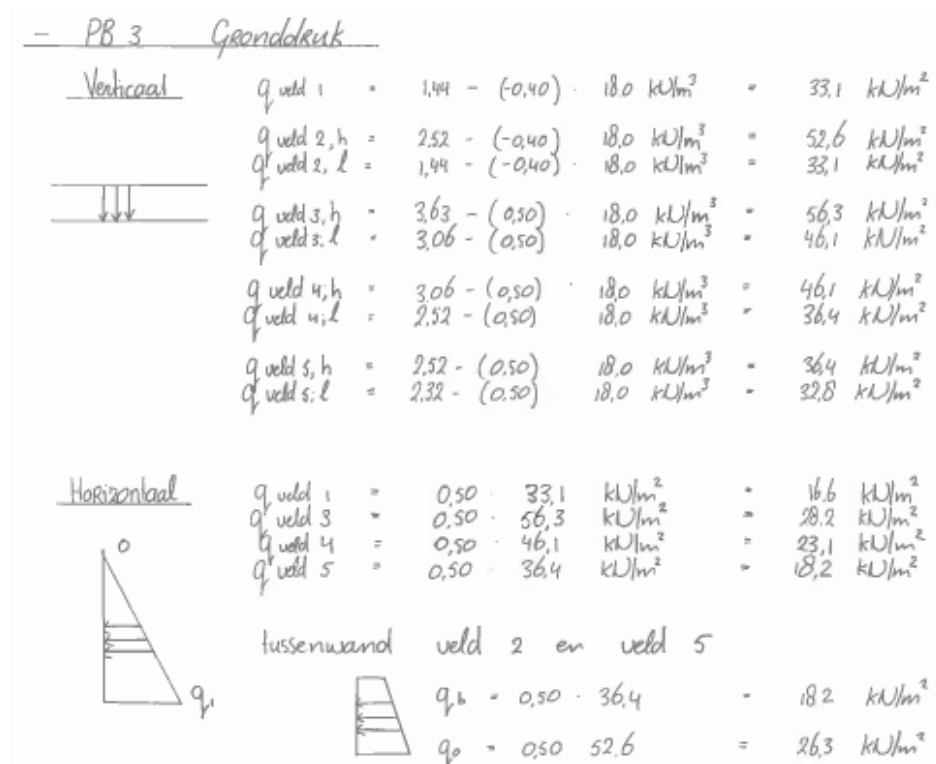 - PB 3 Gronddruk
Verticaal
q veld 1 = 1,44 - (-0,40) · 18.0 kN/m³ = 33,1 kN/m²
q veld 2, h = 2.52 - (-0,40) · 18,0 kN/m³ = 52,6 kN/m²
q veld 2, l = 1,44 - (-0,40) · 18,0 kN/m³ = 33,1 kN/m²
q veld 3, h = 3,63 - (0,50) · 18,0 kN/m³ = 56,3 kN/m²
q veld 3; l = 3,06 - (0,50) 18,0 kN/m³ = 46,1 kN/m²
q veld 4; h = 3,06 - (0,50) · 18,0 kN/m³ = 46,1 kN/m²
q veld 4; l = 2,52 - (0,50) 18,0 kN/m³ = 36,4 kN/m²
q veld 5, h = 2,52 - (0,50) 18,0 kN/m³ = 36,4 kN/m²
q veld 5; l = 2,32 - (0,50) 18,0 kN/m³ = 32,8 kN/m²
Horizontaal
q veld 1 = 0,50 · 33,1 kN/m² = 16,6 kN/m²
q veld 3 = 0,50 · 56,3 kN/m² = 28.2 kN/m²
q veld 4 = 0,50 · 46,1 kN/m² = 23,1 kN/m²
q veld 5 = 0,50 · 36,4 kN/m² = 18,2 kN/m²
0
q₁
tussenwand veld 2 en veld 5
q b = 0,50 · 36,4 = 18.2 kN/m²
q o = 0,50 52.6 = 26,3 kN/m²